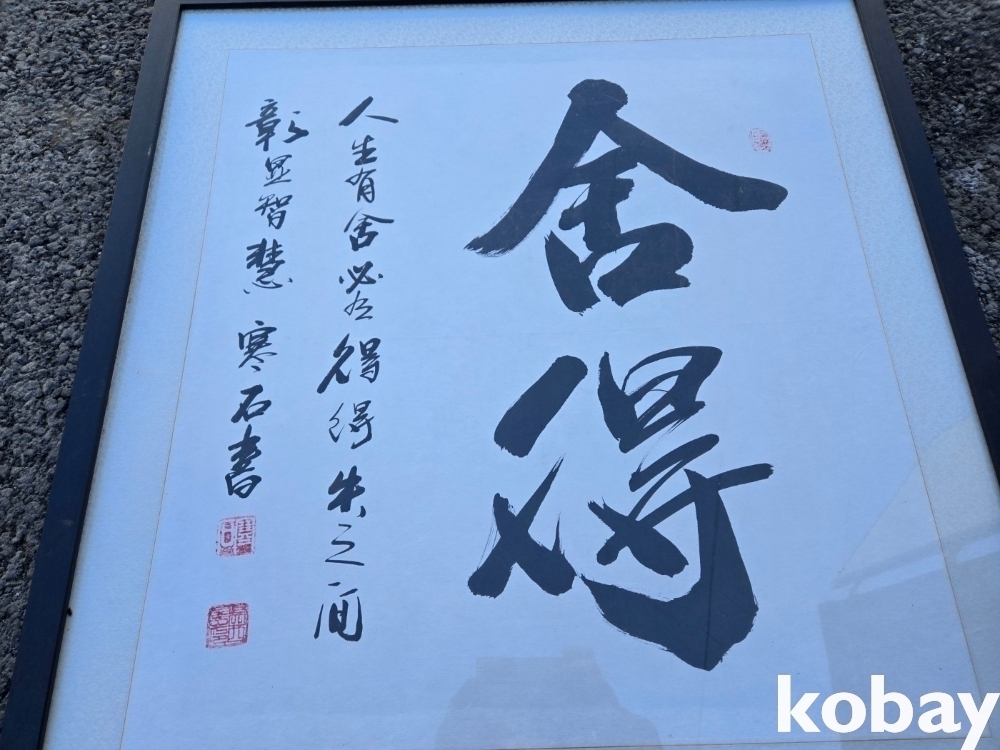 舍得
人生有舍必有得得失之间
彰显智慧 寒石書
kobay